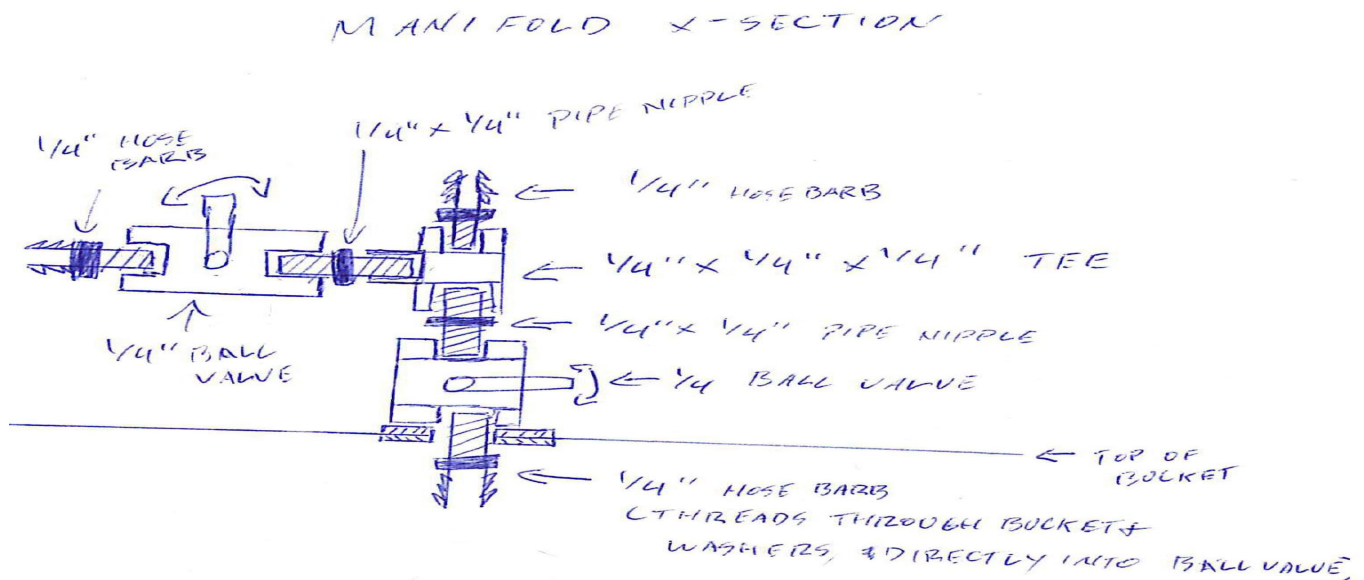 MANIFOLD X-SECTION
1/4" x 1/4" PIPE NIPPLE
1/4" HOSE
BARB
1/4" HOSE BARB
1/4" x 1/4" x 1/4" TEE
1/4" x 1/4" PIPE NIPPLE
1/4" BALL
VALVE
1/4 BALL VALVE
TOP OF
BUCKET
1/4" HOSE BARB
(THREADS THROUGH BUCKET &
WASHERS, & DIRECTLY INTO BALL VALVE,